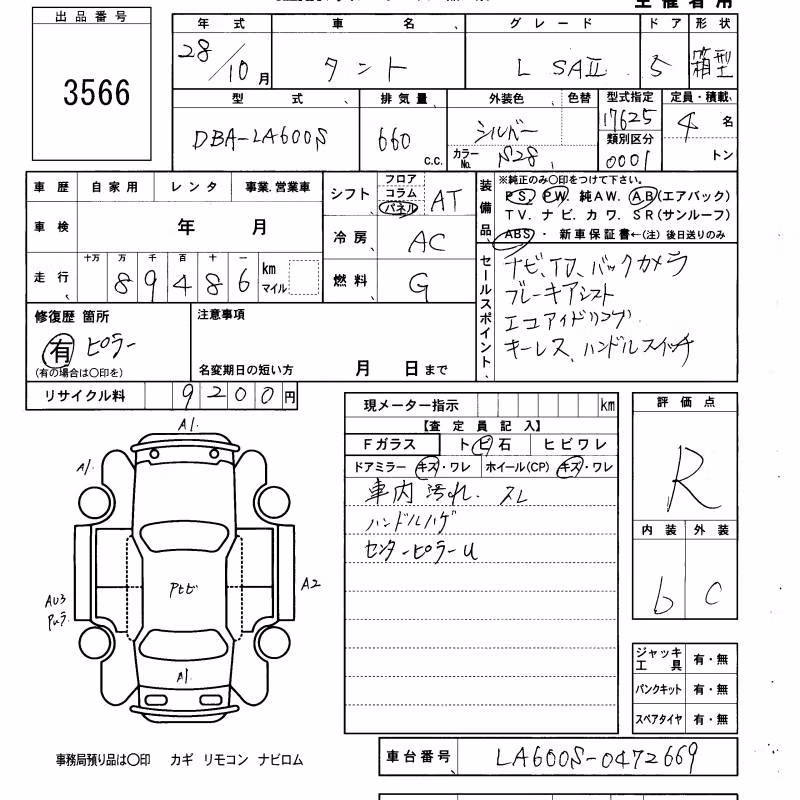 主催者用
出品番号
3566
年式 車名 グレード ドア 形状
28/10月 タント L SAII 5 箱型
型式 排気量 外装色 色替 型式指定 定員・積載
DBA-LA600S 660 c.c. シルバー カラーNo. S28 17625 類別区分 0001 4名 トン
車歴 自家用 レンタ 事業.営業車
車検 年 月
走行 十万 万 千 百 十 一 km マイル
89486
シフト フロア コラム パネル AT
冷房 AC
燃料 G
装備品
※純正のみ〇印をつけて下さい。
PS. PW. 純AW. AB(エアバック)
TV. ナビ. カワ. SR(サンルーフ)
ABS・ 新車保証書←(注) 後日送りのみ
セールスポイント
ナビ、TV、バックカメラ
ブレーキアシスト
エコアイドリング
キーレス、ハンドルスイッチ
修復歴 箇所
有 ピラー
(有の場合は〇印を)
注意事項
名変期日の短い方 月 日まで
リサイクル料 9200円
現メーター指示 km
【査定員記入】
Fガラス トビ石 ヒビワレ
ドアミラー キズ・ワレ ホイール(CP) キズ・ワレ
車内 汚れ. スレ
ハンドルハゲ
センターピラーU
評価点
R
内装 外装
b C
A1.
A1.
AU3
PUラ.
Pヒビ
A2
A1.
ジャッキ工具 有・無
パンクキット 有・無
スペアタイヤ 有・無
事務局預り品は〇印 カギ リモコン ナビロム
車台番号 LA600S-0472669